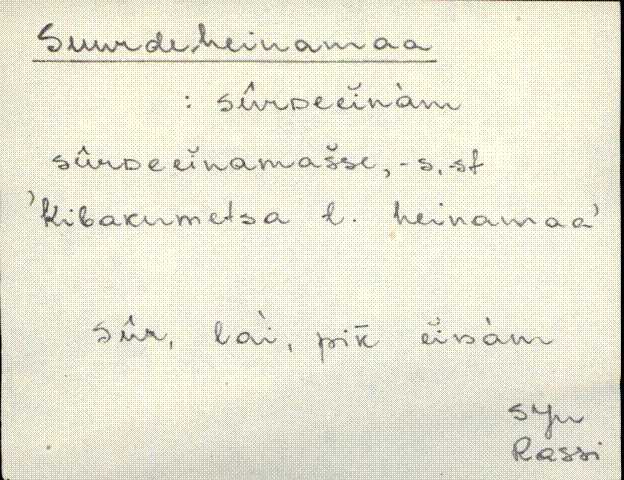 Suurdeheinamaa
: sûrᴅeĕi̮nàm
sûrᴅeĕi̮namašse, -s, -st
'Kibakumetsa t. heinamaa'
sûr, lài, pik̄ ĕi̮nàm
Syn
Rassi